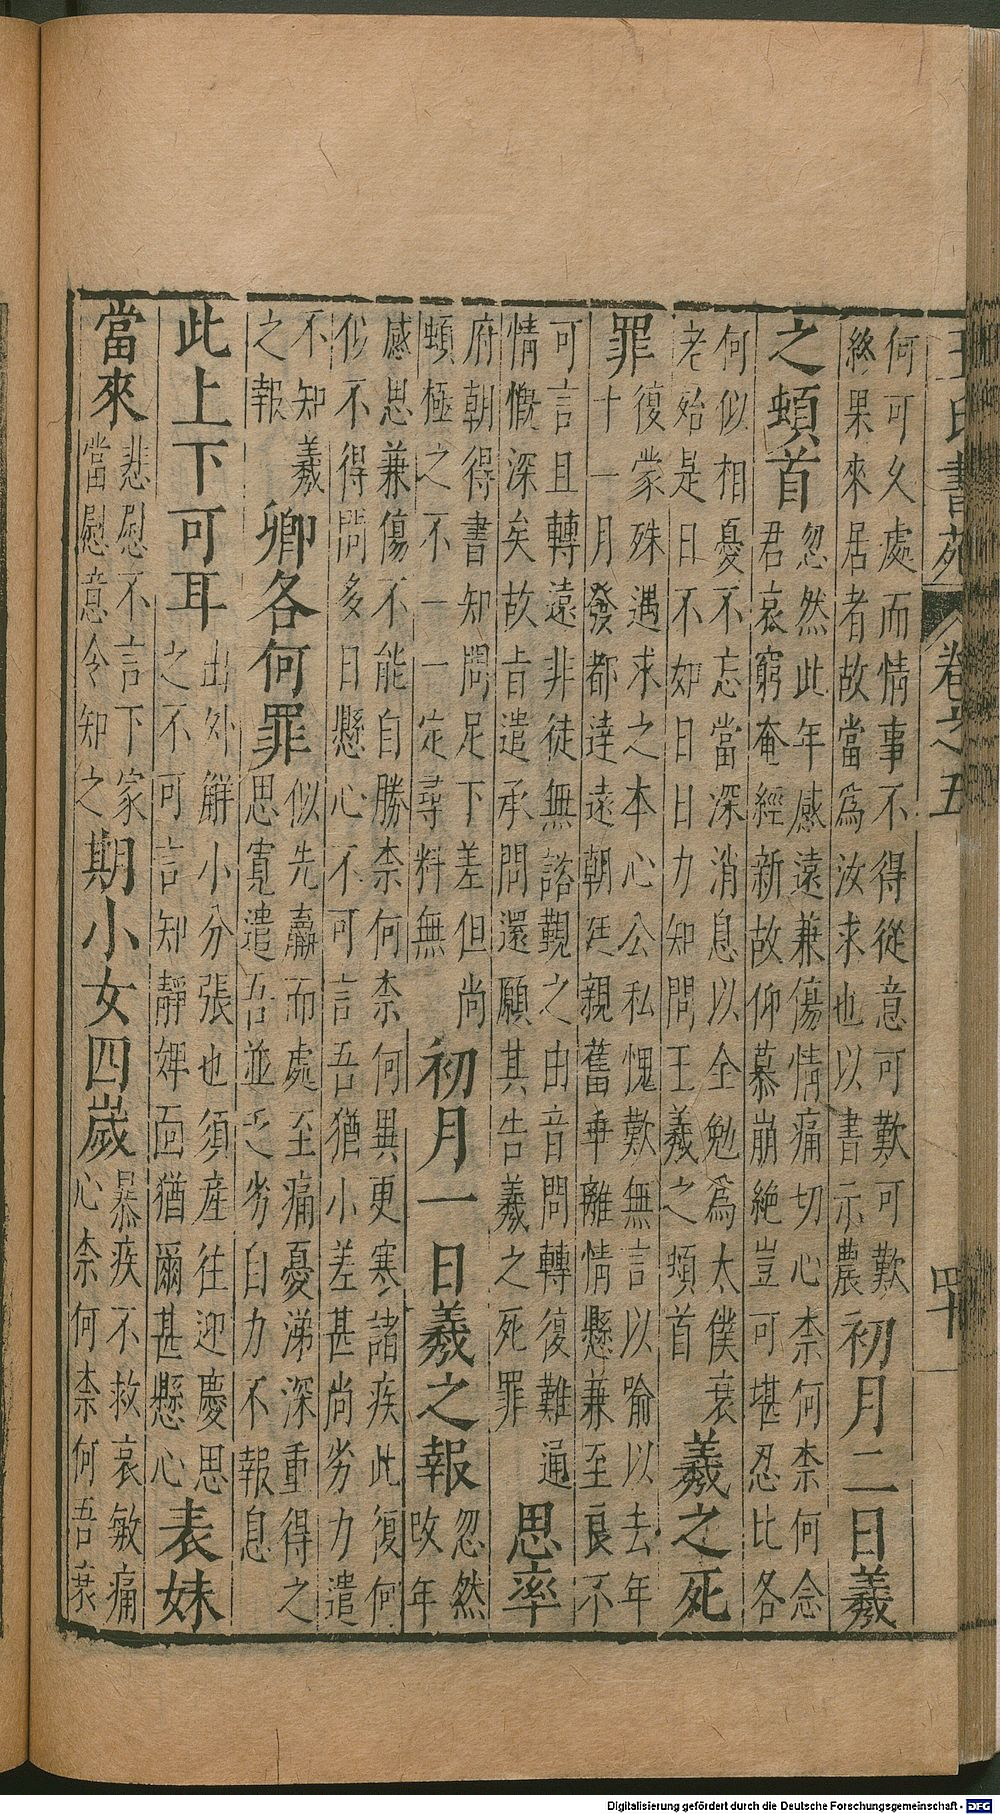 王氏書苑　卷之五　四十
何可久處而情事不得從意可歎可歎
終果來居者故當爲汝求也以書示農
初月二日羲
之頓首
忽然此年感遠兼傷情痛切心柰何柰何念
君哀窮奄經新故仰慕崩絶豈可堪忍比各
何似相憂不忘當深消息以全勉爲太僕衰
老殆是日不如日日力知問王羲之頓首
羲之死
罪
復蒙殊遇求之本心公私愧歎無言以喻以去年
十一月發都達遠朝廷親舊乖離情懸兼至良不
可言且轉遠非徒無諮觀之由音問轉復難通
情慨深矣故旨遣承問還願其告羲之死罪
思率
府朝得書知問足下差但尚
頓極之不一一定尋料無
初月一日羲之報
忽然
改年
感思兼傷不能自勝柰何柰何異更寒諸疾此復何
似不得問多日懸心不可言吾猶小差甚尚劣力遣
不知羲
之報
卿各何罪
似先羸而處至痛憂涕深重得之
思寬遣吾並乏劣自力不報息
此上下可耳
出外解小分張也須産往迎慶思
之不可言知靜婢面猶爾甚懸心
表妹
當來
悲慰不言下家
當慰意令知之
期小女四歲
暴疾不救哀敏痛
心柰何柰何吾衰
Digitalisierung gefördert durch die Deutsche Forschungsgemeinschaft - DFG